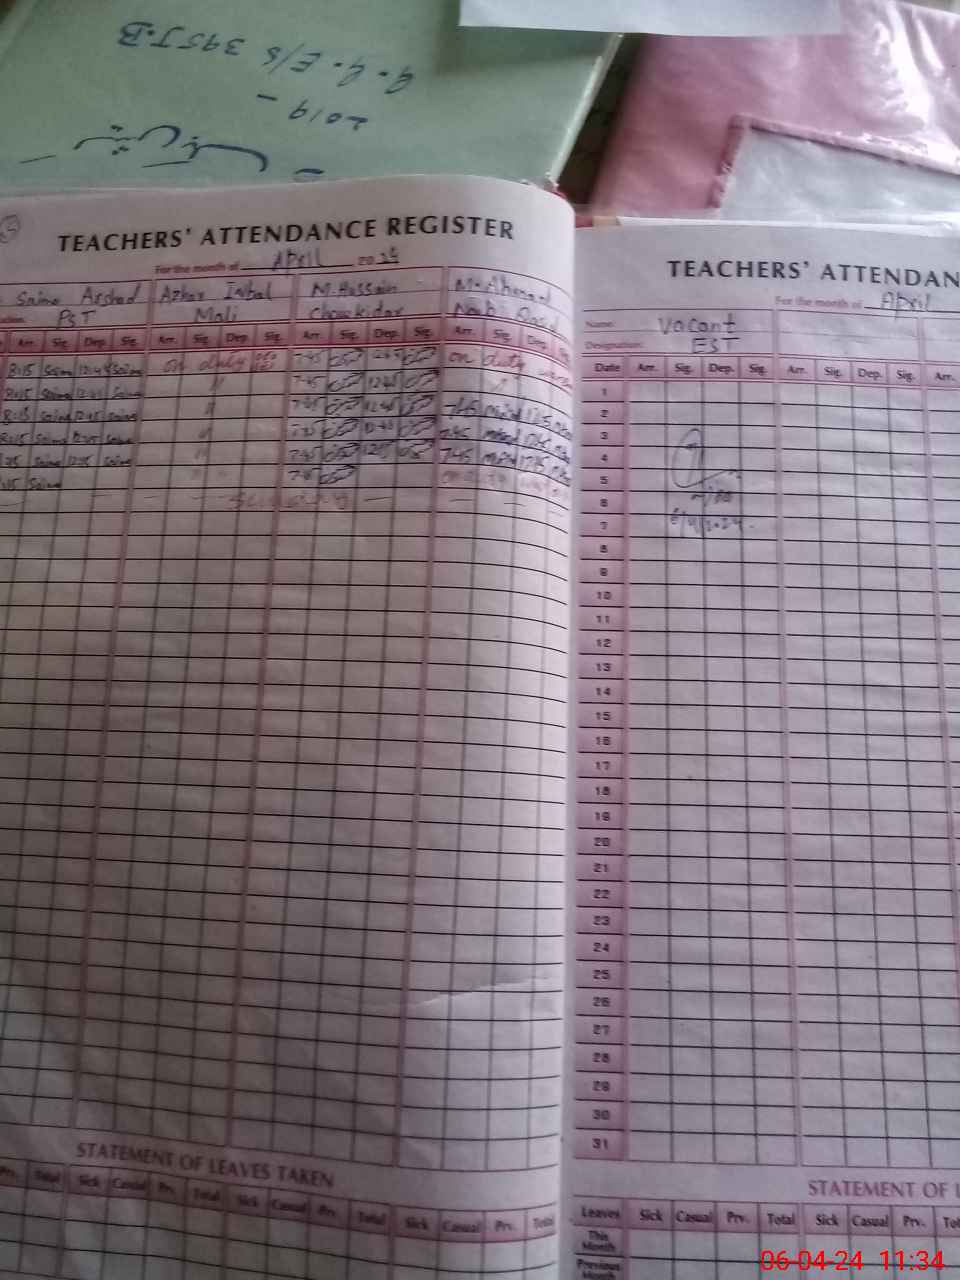 G.G.E/S 395J.B
2019 -
TEACHERS' ATTENDANCE REGISTER
For the month of April 2024
Saima Arshad Azhar Iqbal M.Hussain M.Ahmad
PST Mali Chowkidar Naib Qasid
Arr. Sig. Dep. Sig. Arr. Sig. Dep. Sig. Arr. Sig. Dep. Sig. Arr. Sig. Dep. Sig.
8:15 Saima 12:45 Saima on duty 7:45 12:45 on duty
8:15 Saima 12:45 Saima " 7:45 12:45
8:15 Saima 12:45 Saima " 7:45 12:45 7:45 12:45
8:15 Saima 12:45 Saima " 7:45 12:45 7:45 12:45
Saima 12:45 Saima " 7:45 12:45 7:45 12:45
Saima " 7:45
STATEMENT OF LEAVES TAKEN
Prv. Total Sick Casual Prv. Total Sick Casual Prv. Total Sick Casual Prv. Total
TEACHERS' ATTENDAN
For the month of April
Name: Vacant
Designation: EST
Date Arr. Sig. Dep. Sig. Arr. Sig. Dep. Sig. Arr.
1
2
3
4
5
6
7
8
9
10
11
12
13
14
15
16
17
18
19
20
21
22
23
24
25
26
27
28
29
30
31
6/4/2024.
STATEMENT OF L
Leaves Sick Casual Prv. Total Sick Casual Prv. Tot
This Month
Previous Month
06-04-24 11:34